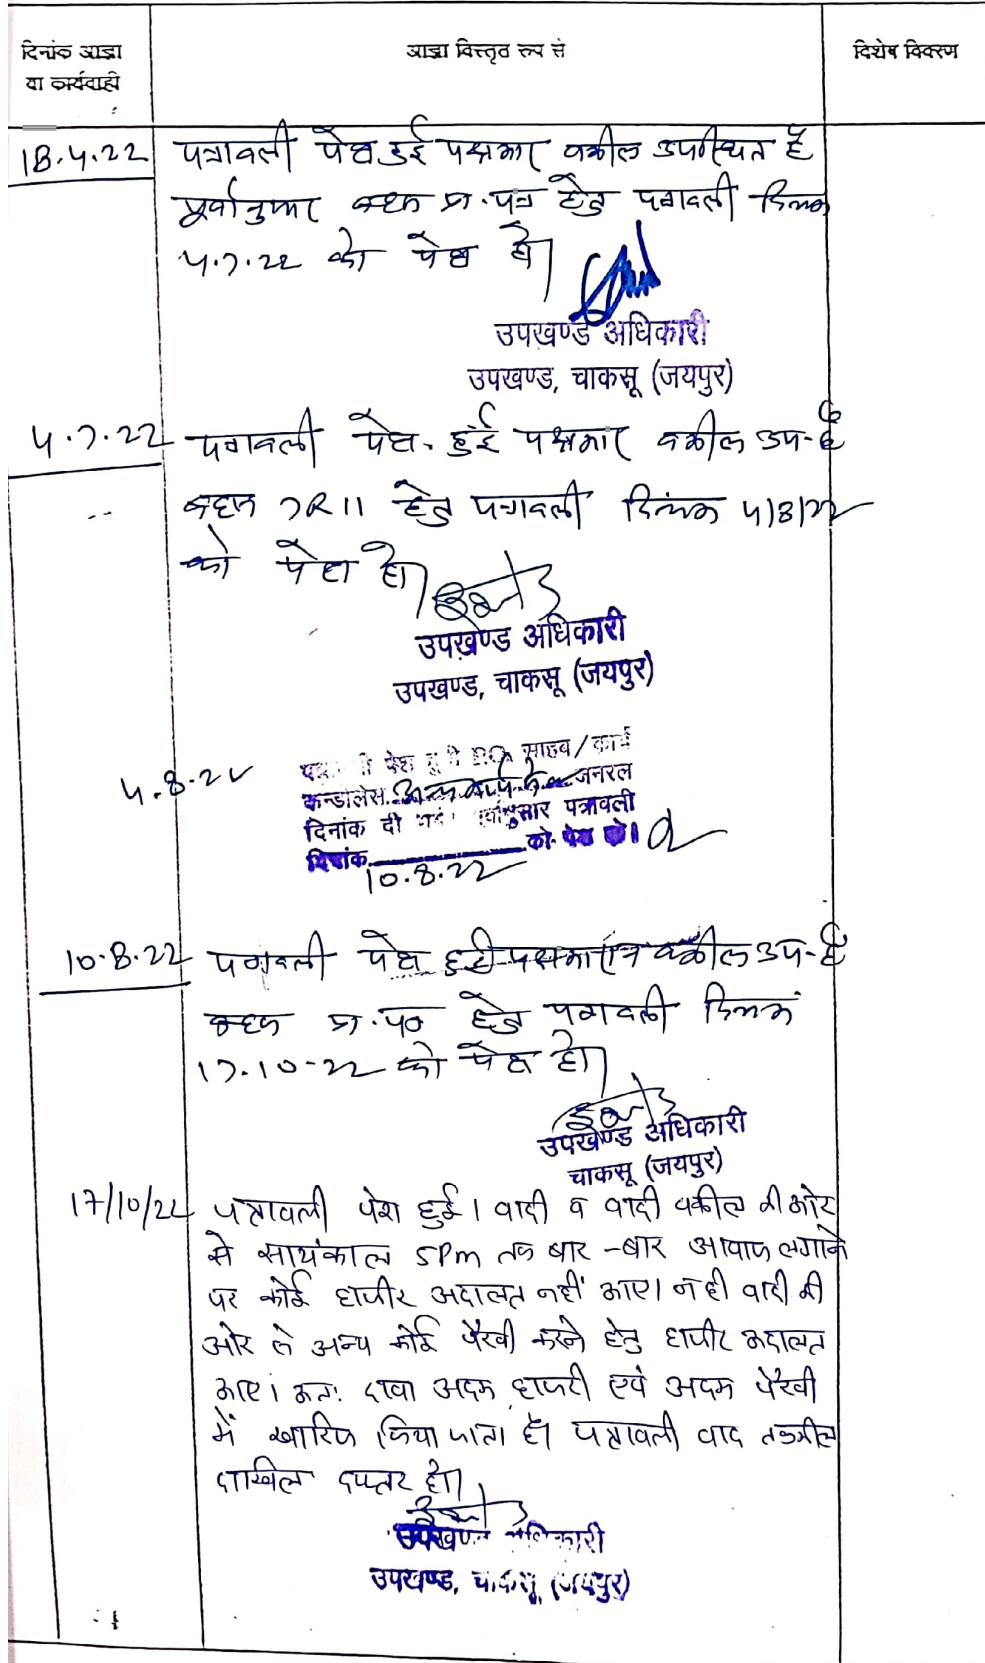 दिनांक आज्ञा
या कार्यवाही
आज्ञा विस्तृत रूप से
विशेष विवरण
18.4.22
पत्रावली पेश हुई पक्षकार वकील उपस्थित है
पूर्वानुसार बहस प्रा.पत्र हेतु पत्रावली दिनांक
4.7.22 को पेश हो।
उपखण्ड अधिकारी
उपखण्ड, चाकसू (जयपुर)
4.7.22
पत्रावली पेश हुई पक्षकार वकील उप- है
बहस 7R11 हेतु पत्रावली दिनांक 4/8/22
को पेश हो।
उपखण्ड अधिकारी
उपखण्ड, चाकसू (जयपुर)
4.8.22
पेश साहब/कार्य
कन्डोलेस जनरल
दिनांक दी पत्रावली
दिनांक 10.8.22 को पेश हो।
10.8.22
पत्रावली पेश हुई पक्षकारान वकील उप- है
बहस प्रा.पत्र हेतु पत्रावली दिनांक
17.10-22 को पेश हो।
उपखण्ड अधिकारी
चाकसू (जयपुर)
17/10/22
पत्रावली पेश हुई। वादी व वादी वकील की ओर
से सायंकाल 5Pm तक बार-बार आवाज लगाने
पर कोई हाजीर अदालत नहीं आए। न ही वादी की
ओर से अन्य कोई पैरवी करने हेतु हाजीर अदालत
आए। अतः दावा अदम हाजरी एवं अदम पैरवी
में खारिज किया जाता है। पत्रावली बाद तकमील
दाखिल दफ्तर हो।
उपखण्ड अधिकारी
उपखण्ड, चाकसू (जयपुर)